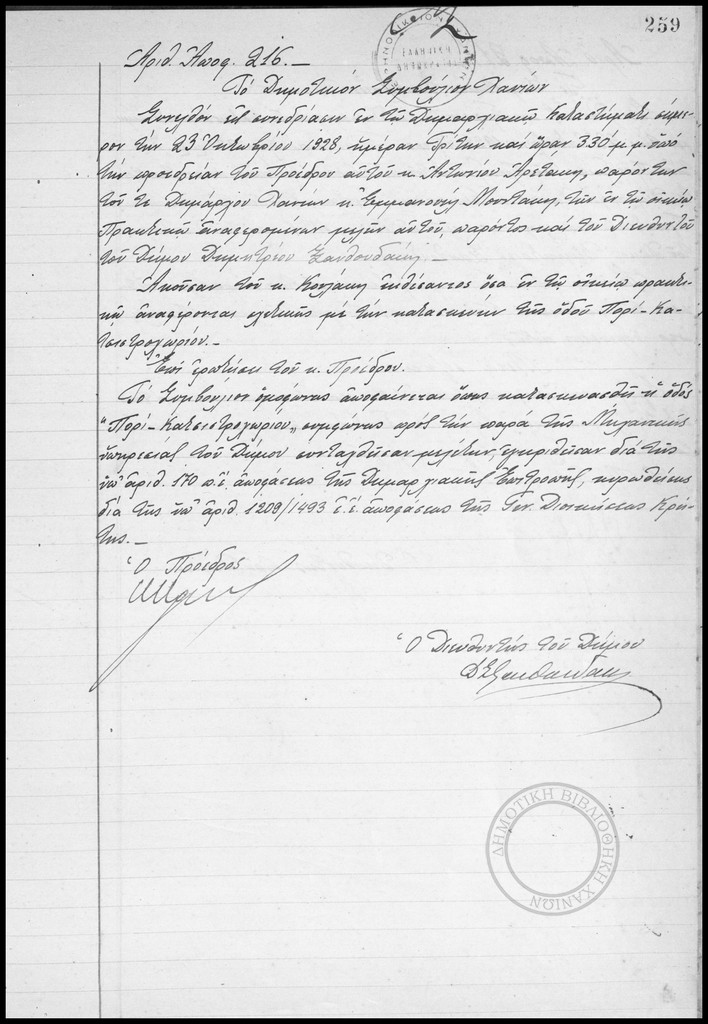 259
Ἀριθ. Ἀποφ. 216.—
Τὸ Δημοτικὸν Συμβούλιον Χανίων
Συνελθὸν εἰς συνεδρίασιν ἐν τῷ Δημαρχιακῷ Καταστήματι σήμε-
ρον τὴν 23 Ὀκτωβρίου 1928, ἡμέραν Τρίτην καὶ ὥραν 3.30 μ.μ. ὑπὸ
τὴν προεδρείαν τοῦ Προέδρου αὐτοῦ κ. Ἀντωνίου Ἀρετάκη, παρόντων
τοῦ τε Δημάρχου Χανίων κ. Ἐμμανουὴλ Μουντάκη, τῶν ἐν τῷ οἰκείῳ
Πρακτικῷ ἀναφερομένων μελῶν αὐτοῦ, παρόντος καὶ τοῦ Διευθυντοῦ
τοῦ Δήμου Δημητρίου Ξανθουδάκη.—
Ἀκοῦσαν τοῦ κ. ἐκθέσαντος ὅσα ἐν τῷ οἰκείῳ πρακτι-
κῷ ἀναφέρονται σχετικῶς μὲ τὴν κατασκευὴν τῆς ὁδοῦ Πορί-Κα-
τσιστροχωρίου.—
Ἐπὶ ἐρωτήσει τοῦ κ. Προέδρου.
Τὸ Συμβούλιον ὁμοφώνως ἀποφαίνεται ὅπως κατασκευασθῇ ἡ ὁδὸς
"Πορί-Κατσιστροχωρίου" συμφώνως πρὸς τὴν παρὰ τῆς Μηχανικῆς
ὑπηρεσίας τοῦ Δήμου συνταχθεῖσαν μελέτην, ἐγκριθεῖσαν διὰ τῆς
ὑπ' ἀριθ. 170 ἀποφάσεως τῆς Δημαρχιακῆς Ἐπιτροπῆς, κυρωθείσης
διὰ τῆς ὑπ' ἀριθ. 1209/1493 ἀποφάσεως τῆς Γεν. Διοικήσεως Κρή-
της.—
Ὁ Πρόεδρος
Ὁ Διευθυντὴς τοῦ Δήμου
ΔΞανθουδάκης
ΔΗΜΟΤΙΚΗ ΒΙΒΛΙΟΘΗΚΗ ΧΑΝΙΩΝ